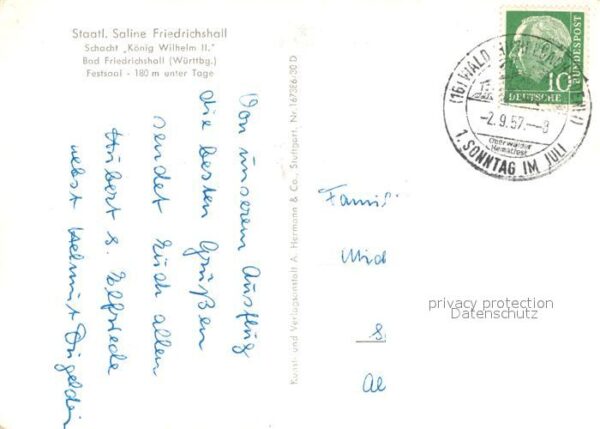 Staatl. Saline Friedrichshall
Schacht „König Wilhelm II."
Bad Friedrichshall (Württbg.)
Festsaal - 180 m unter Tage
Von unserem Ausflug
die besten Grüßen
sendet Euch allen
Hubert u. Elfriede
nebst Helmut
Kunst- und Verlagsanstalt A. Hermann & Co., Stuttgart. Nr. 16/386/30 D
10
DEUTSCHE BUNDESPOST
(16) WALD
-2.9.57.-8
Oberwalder
Heimatfest
1. SONNTAG IM JULI
Famil
Mid
S
Al
privacy protection
Datenschutz